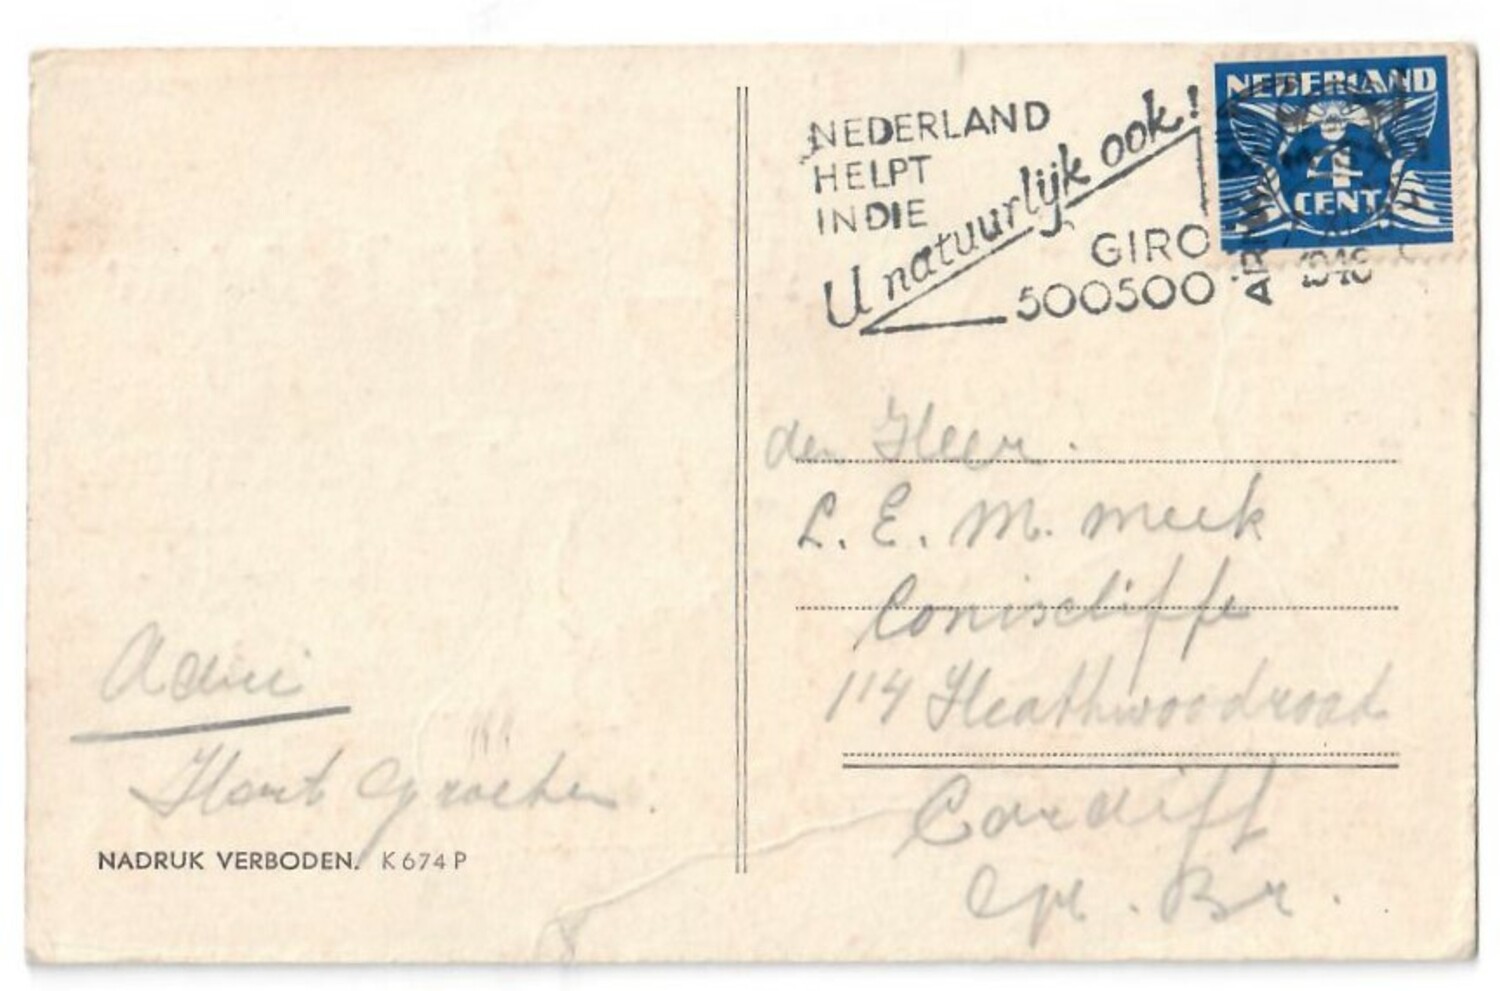 NEDERLAND
HELPT
INDIE
U natuurlijk ook!
GIRO
500500
NEDERLAND
CENT
1946
den Heer.
L. E. M. Meek
Coniscliffe
114 Heathwoodroad
Cardiff
Gr. Br.
NADRUK VERBODEN. K 674 P